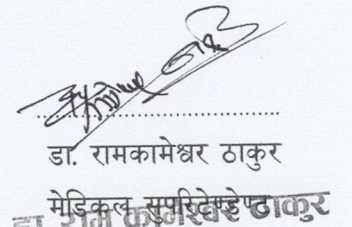 डा. रामकामेश्वर ठाकुर
मेडिकल सुपरिटेण्डेण्ट
डा. राम कामेश्वर ठाकुर